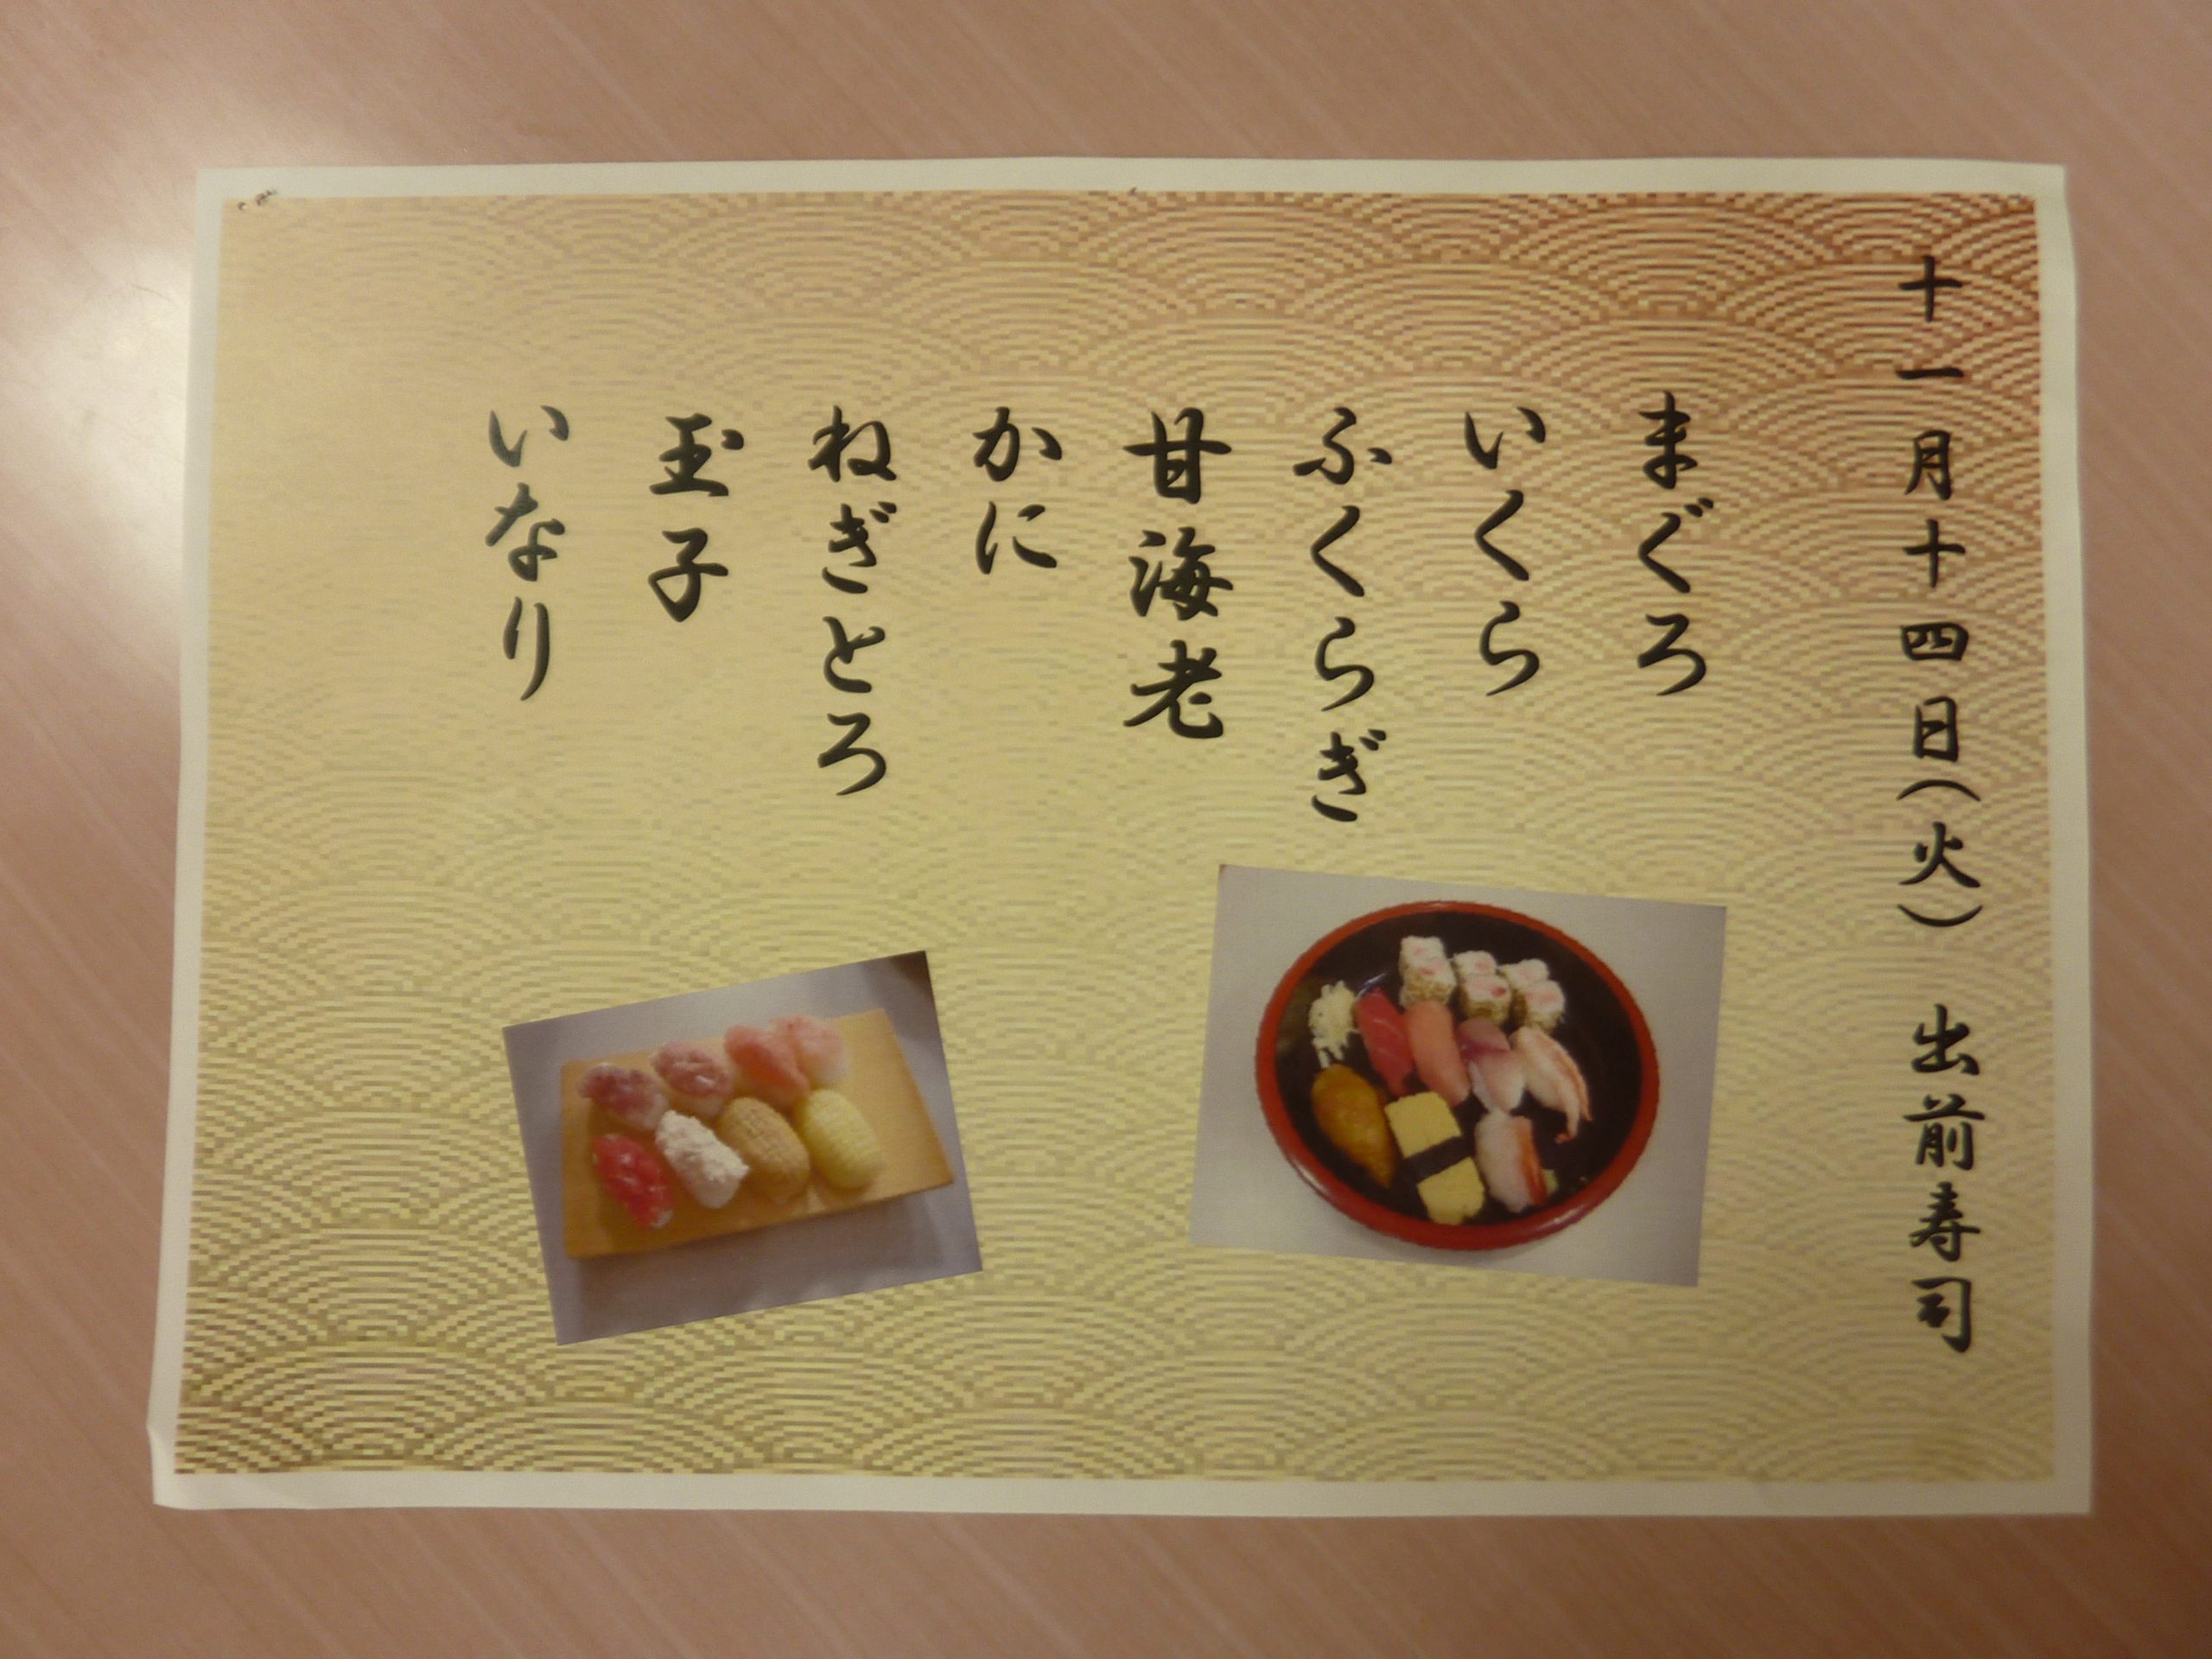 十一月十四日(火) 出前寿司
まぐろ
いくら
ふくらぎ
甘海老
かに
ねぎとろ
玉子
いなり